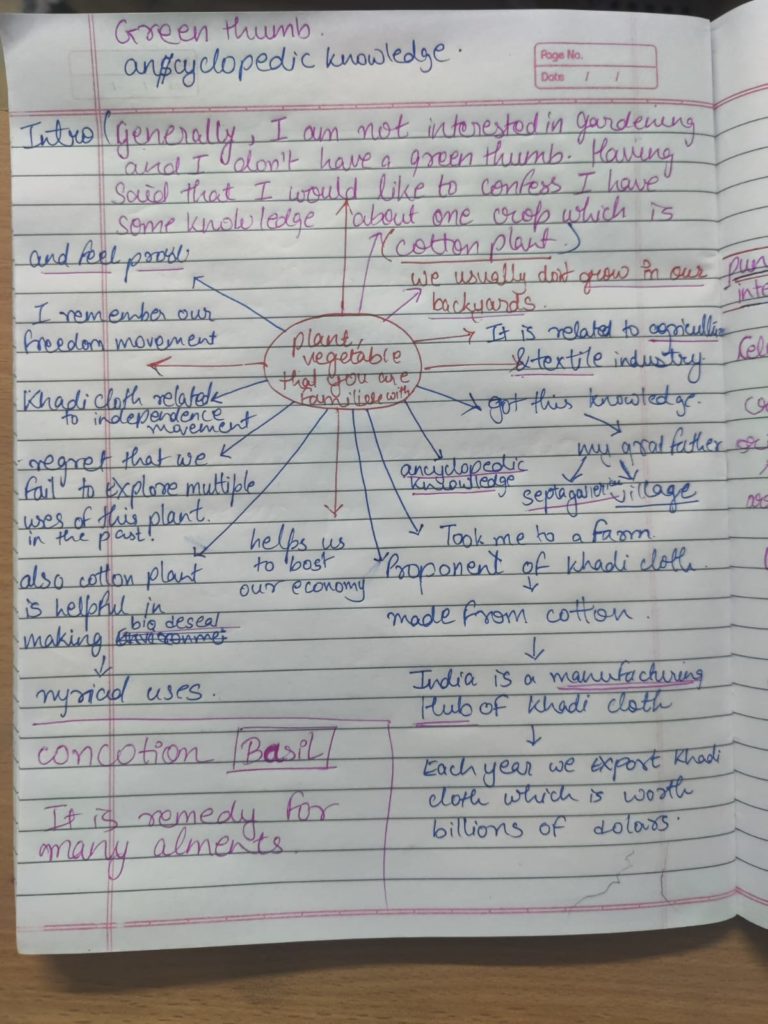 Green thumb.
anscyclopedic knowledge.
Page No.
Date / /
Intro (Generally, I am not interested in gardening
and I don't have a green thumb. Having
said that I would like to confess I have
some knowledge about one crop which is
(cotton plant.)
we usually don't grow in our
backyards.
and feel proud.
I remember our
freedom movement
Khadi cloth related
to independence
movement
regret that we
fail to explore multiple
uses of this plant.
in the past!
also cotton plant
is helpful in
making bio deseal
myriad uses.
plant,
vegetable
that you are
familiar with
It is related to agriculture
& textile industry.
got this knowledge.
my grat father
septagenerian village
ancyclopedic
knowledge
Took me to a farm.
Proponent of khadi cloth.
helps us
to bost
our economy
made from cotton.
India is a manufacturing
Hub of khadi cloth
Each year we export khadi
cloth which is worth
billions of dolars.
concotion Basil
It is remedy for
many alments.